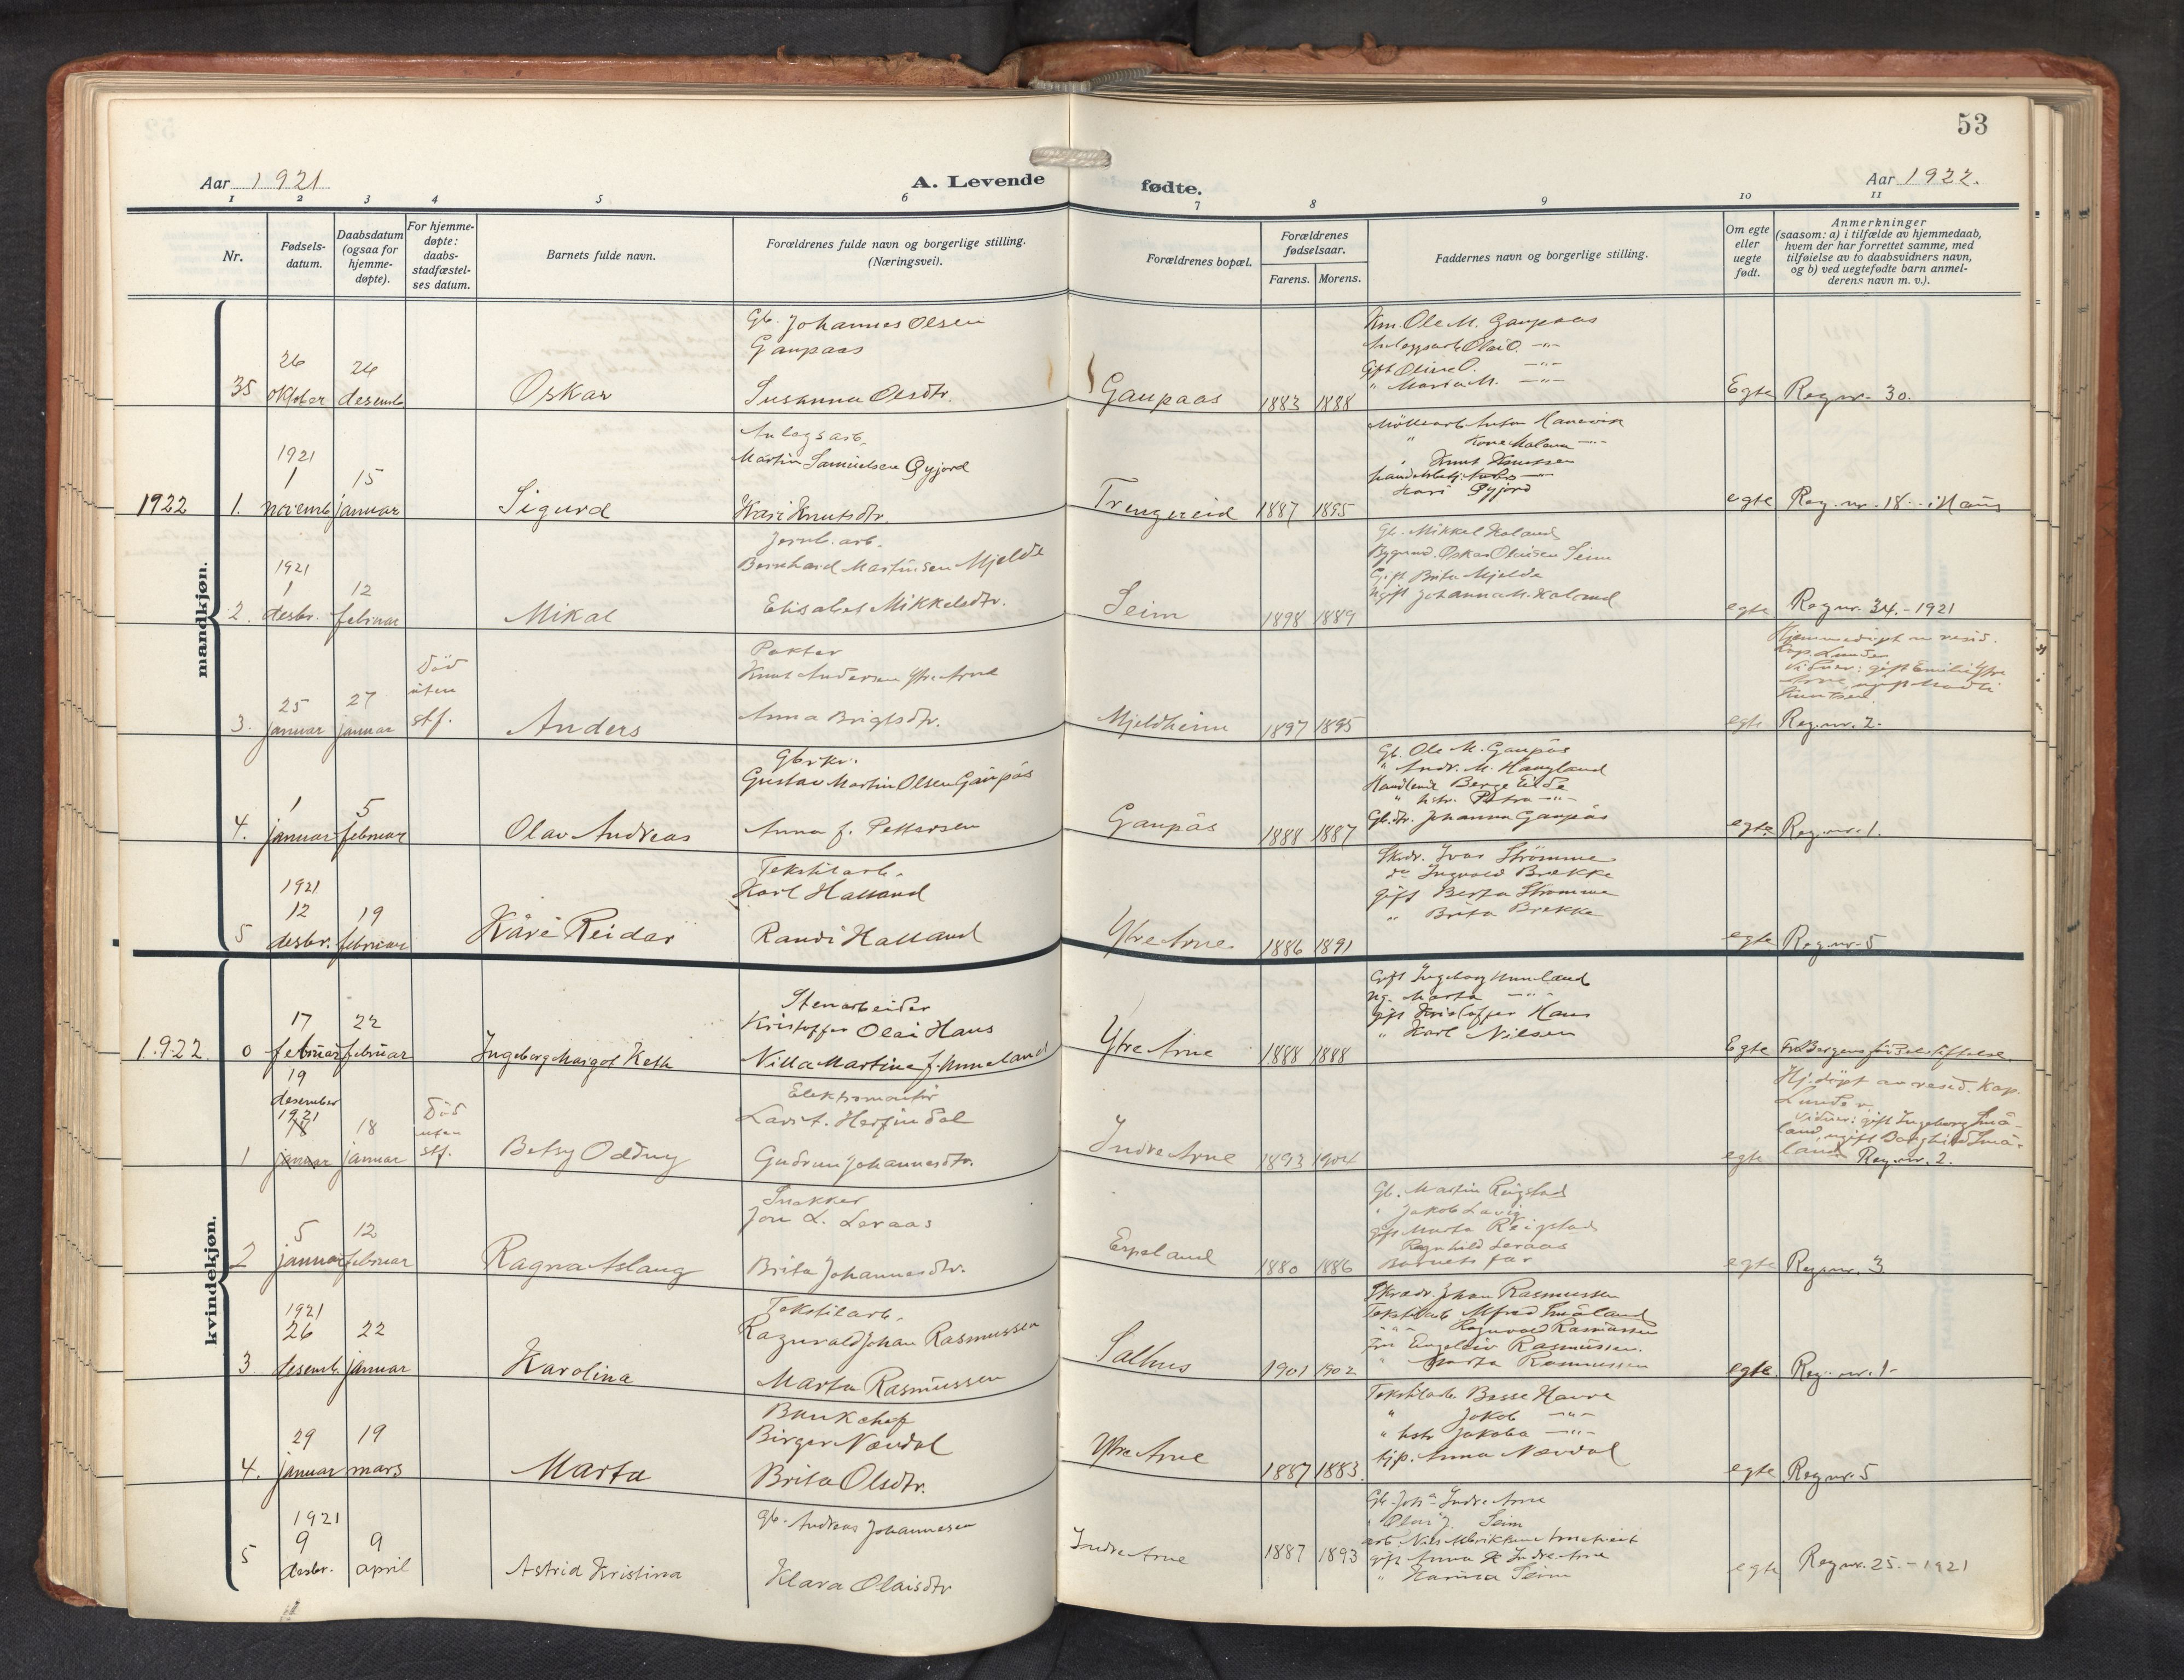 53
Aar 1921
A. Levende
fødte.
Aar 1922.
1 2 3 4 5 6 7 8 9 10 11
Nr.
Fødsels-
datum.
Daabsdatum
(ogsaa for
hjemme-
døpte).
For hjemme-
døpte:
daabs-
stadfæstel-
ses datum.
Barnets fulde navn.
Forældrenes fulde navn og borgerlige stilling.
(Næringsvei).
Forældrenes bopæl.
Forældrenes
fødselsaar.
Farens. Morens.
Faddernes navn og borgerlige stilling.
Om egte
eller
uegte
født.
Anmerkninger
(saasom: a) i tilfælde av hjemmedaab,
hvem der har forrettet samme, med
tilføielse av to daabsvidners navn,
og b) ved uegtefødte barn anmel-
derens navn m. v.).
mandkjøn.
35
26
oktober
26
desemb
Oskar
Gb. Johannes Olsen
Gaupaas
Susanna Olsdtr.
Gaupaas
1883 1888
Km. Ole M. Gaupaas
Anleggsarb. Olai O. -"-
Gift Oline O. -"-
" Maria M. -"-
Egte
Reg nr. 30.
1922
1.
1921
1
novemb
15
januar
Sigurd
Anlegsarb.
Martin Samuelsen Øyjord
Kari Knutsdtr.
Trengereid
1887 1895
Møllearb. Anton Hanevik
" Kone Malena -"-
Knut Knutsen
Kari Øyjord
egte
Reg. nr. 18 i Haus
2.
1921
1
desbr.
12
februar
Mikal
Jernb. arb.
Bernhard Martinsen Mjelde
Elisabet Mikkelsdtr.
Seim
1898 1889
Gb. Mikkel Haland
Oskar Olaisen Seim
Gift Brita Mjelde
Ugift Johanna M. Haland
egte
Reg nr. 34. - 1921
3.
25
januar
27
januar
Död
uten
stf.
Anders
Pakker
Knut Andersen Ytre Arne
Anna Brigtsdtr.
Mjeldheim
1897 1895
egte
Hjemmedøpt av resid.
Kap. Lunde
Vidner: gift Emilie Ytre
Arne, ugift
Knutsen
Reg. nr. 2.
4.
1
januar
5
februar
Olav Andreas
Gbrkr.
Gustav Martin Olsen Gaupås
Anna f. Pettersen
Gaupås
1888 1887
Gb. Ole M. Gaupås
" Andr. M. Haugland
Handlende Berge Eide
" hstr. Petra -"-
Gb.dtr. Johanna Gaupås
egte
Reg. nr. 1.
5
1921
12
desbr.
19
februar
Kåre Reidar
Tekstilarb.
Karl Halland
Randi Halland
Ytre Arne
1886 1891
Skrdr. Ivar Strömme
do Ingvald Brekke
gift Berta Strömme
" Brita Brekke
egte
Reg. nr. 5
kvindekjøn.
1922.
0
17
februar
22
februar
Ingeborg Margot Keth
Stenarbeider
Kristoffer Olai Haus
Nilla Martina f. Unneland
Ytre Arne
1888 1888
Gift Ingeborg Unneland
Ug. Marta -"-
gift Kristoffer Haus
" Karl Nilsen
Egte
Fra Bergens födselsstiftelse
1
19
desember
1921
18
januar
18
januar
Död
uten
stf.
Betsy Oddny
Elektromontör
Lars T. Herfindal
Gudrun Johannesdtr.
Indre Arne
1893 1904
egte
Hj. döpt av resid. Kap.
Lunde
Vidner: gift Ingeborg Små-
land, ugift Borghild Små-
land. Reg. nr. 2.
2
5
januar
12
februar
Ragna Aslaug
Snekker
Jon L. Leraas
Brita Johannesdtr.
Espeland
1880 1886
Gb. Martin Reigstad
" Jakob Lavig
gift Marta Reigstad
Ragnhild Leraas
Barnets far
egte
Reg. nr. 3
3
1921
26
desemb.
22
januar
Karolina
Tekstilarb.
Ragnvald Johan Rasmussen
Marta Rasmussen
Salhus
1901 1902
Skrædr. Johan Rasmussen
Tekstilarb Alfred Småland
" Ragnvald Rasmussen
Fru Engeleiv Rasmussen.
" Marta Rasmussen
egte.
Reg. nr. 1-
4.
29
januar
19
mars
Marta
Bankchef
Birger Nævdal
Brita Olsdtr.
Ytre Arne
1887 1883.
Tekstilarb Basse Havre
" Jakob -"-
" hstr Jakoba -"-
tjp. Anna Nævdal
egte
Reg nr. 5
5
1921
9
desbr.
9
april
Astrid Kristina
Gb. Andreas Johannesen
Klara Olaisdtr
Indre Arne
1887 1893
Gb. Joh's Indre Arne
" Olai J. Seim
gift Anna Indre Arne
" Karina Seim
egte
Reg nr. 25. - 1921